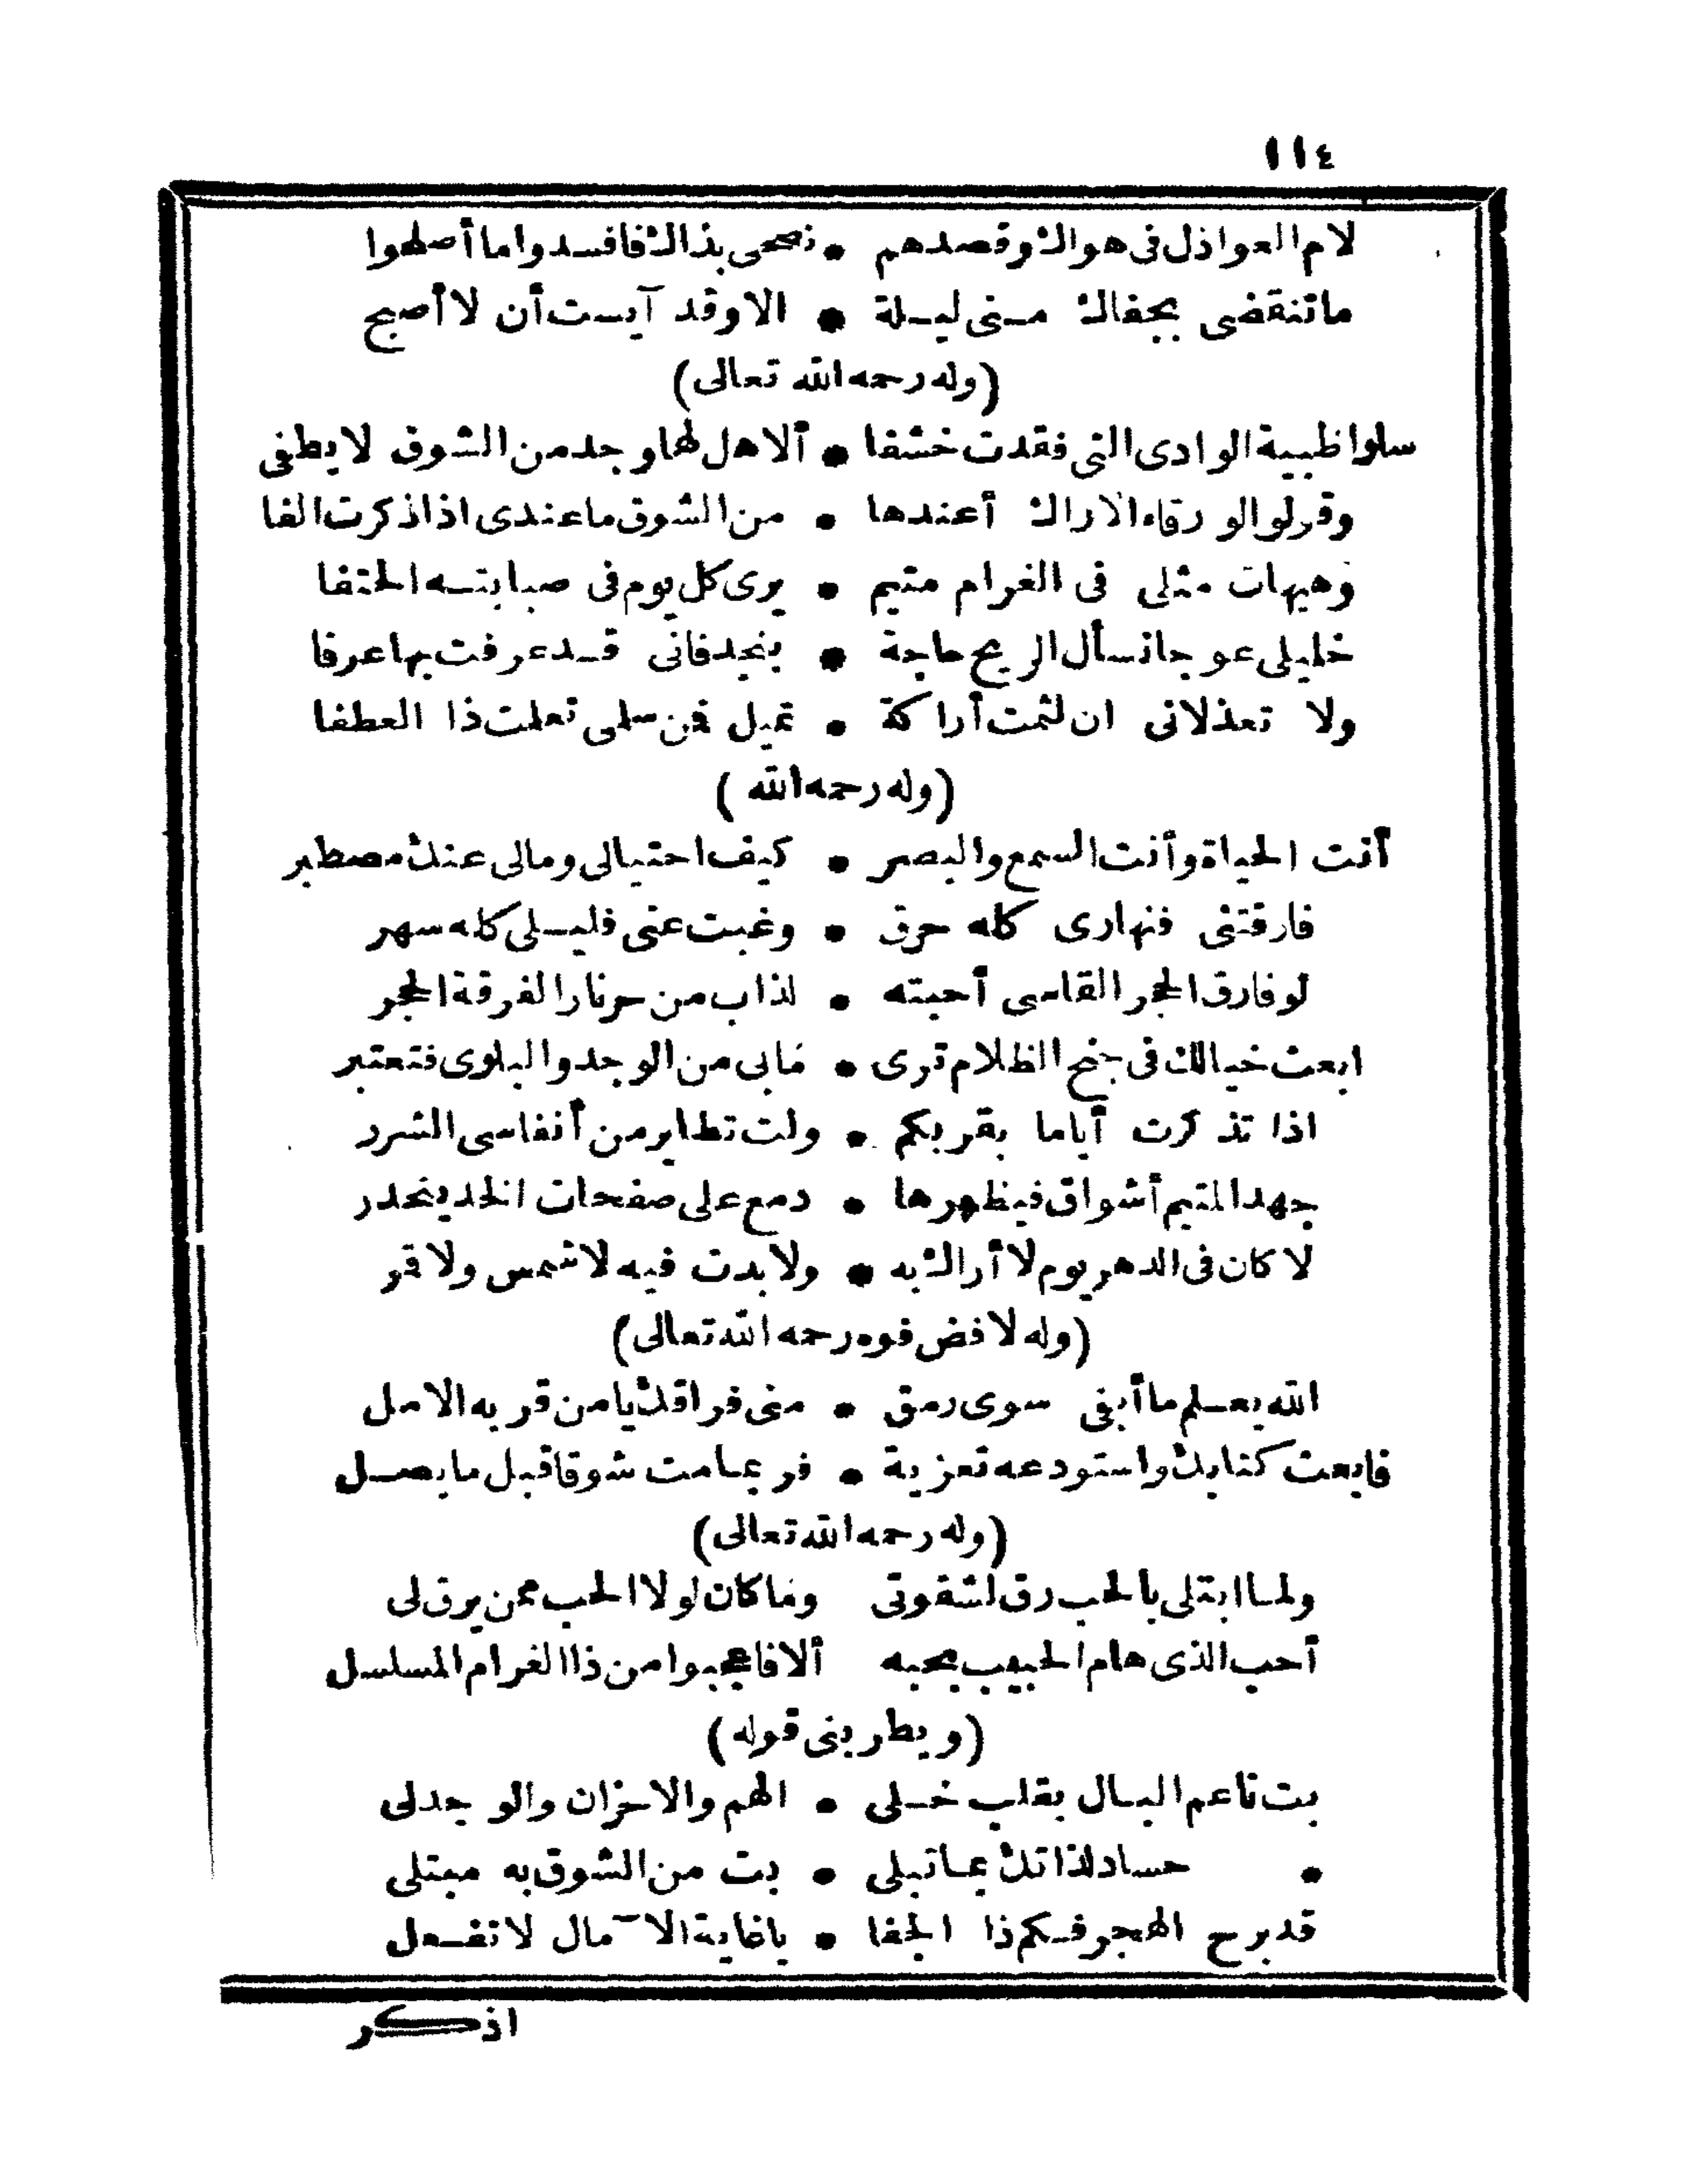 ١١٤
لام العواذل فى هواك وقصدهم * نصحى بذاك فافسدوا ما أصلحوا
ما تنقضى بجفاك مـنى ليـلة * الا وقد آيست أن لا أصبح
(وله رحمه الله تعالى)
سلوا ظبية الوادى التى فقدت خشفا * ألا هل لها وجد من الشوق لا يطفى
وقولوا لورقاء الاراك أعندها * من الشوق ما عندى اذا ذكرت الفا
وهيهات مثلى فى الغرام متيم * يرى كل يوم فى صبابتـه الحتفا
خليلى عوجا نسأل الريح حاجة * بنجد فانى قـد عرفت بها عرفا
ولا تعذلانى ان لثمت أراكة * تميل فمن سلمى تعلمت ذا العطفا
(وله رحمه الله)
أنت الحياة وأنت السمع والبصر * كيف احتيالى ومالى عنك مصطبر
فارقتنى فنهارى كله حرق * وغبت عنى فليـلى كله سهر
لو فارق الحجر القاسى أحبته * لذاب من حر نار الفرقة الحجر
ابعث خيالك فى جنح الظلام ترى * مابى من الوجد والبلوى فتعتبر
اذا تذكرت أياما بقربكم * ولت تطاير من أنفاسى الشرر
جهد المتيم أشواق فيظهرها * دمع على صفحات الخد ينحدر
لا كان فى الدهر يوم لا أراك به * ولا بدت فيه لا شمس ولا قمر
(وله لا فض فوه رحمه الله تعالى)
الله يعـلم ما أبقى سوى رمق * منى فراقك يا من قربه الامل
فابعث كتابك واستودعه تعزية * فربما مت شوقا قبل ما يصـل
(وله رحمه الله تعالى)
ولمـا ابتلى بالحب رق لشقوتى وما كان لولا الحب ممن يرق لى
أحب الذى هام الحبيب بحبه ألا فاعجبوا من ذا الغرام المسلسل
(ويطربنى قوله)
بت ناعم البـال بقلب خـلى * الهم والاحزان والوجد لى
* حساد لذاتك بما تبلى * بت من الشوق به مبتلى
قد برح الهجر فـكم ذا الجفا * يا غاية الآمال لا تفـعل
اذكر